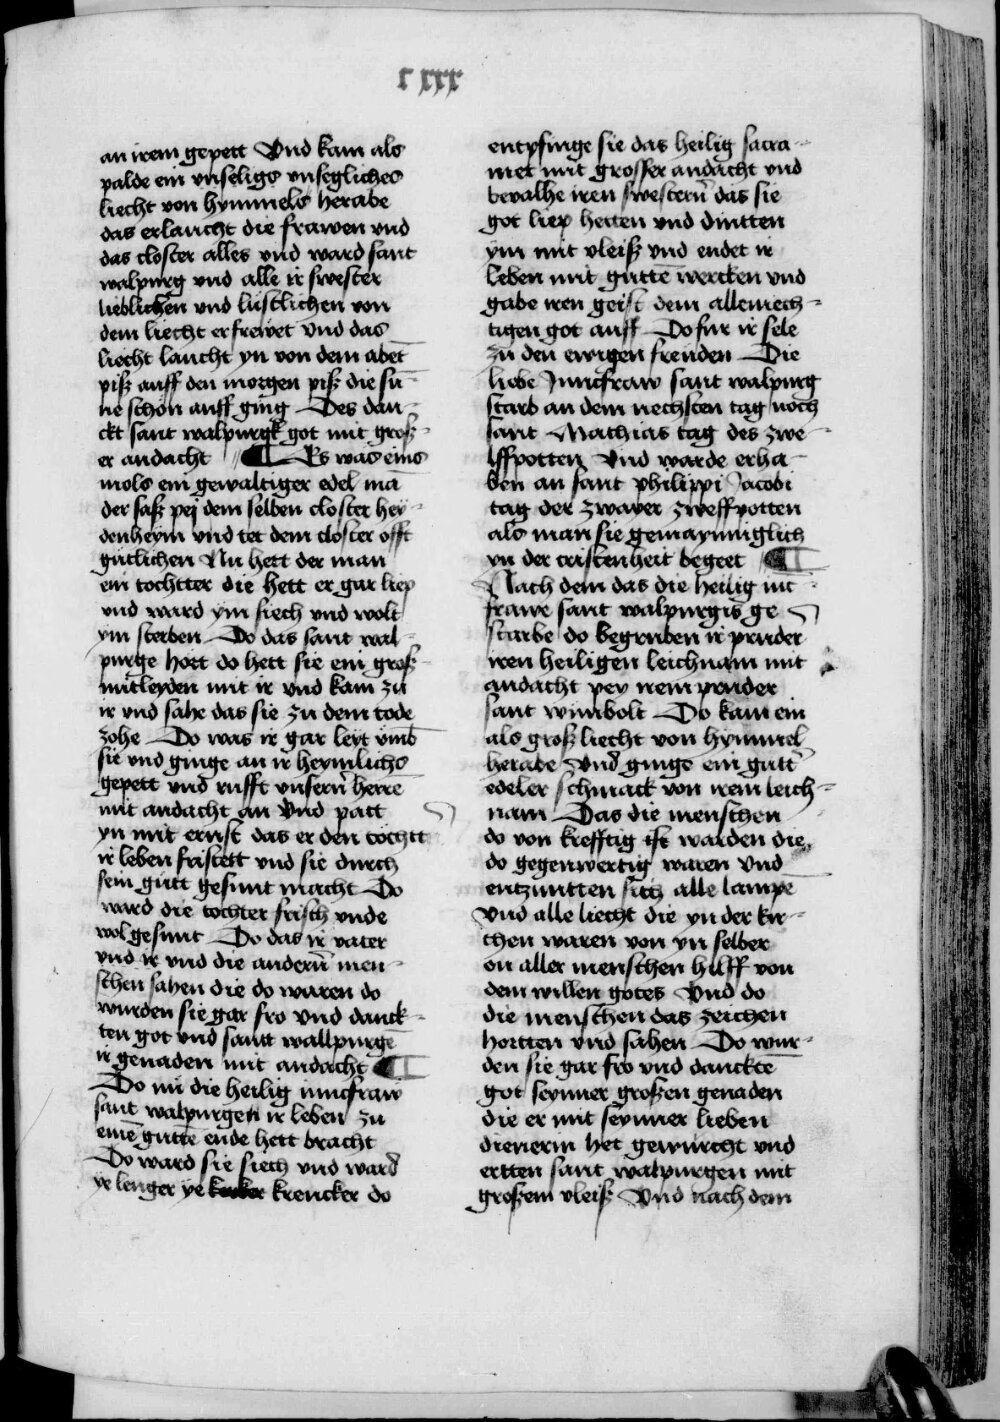 c xxx
an irem gepett Vnd kam als
palde ein vnseligs vnsegliches
liecht von hymmels herabe
das erlaucht die frawen vnd
das closter alles vnd ward sant
walpurg vnd alle ir swester
lieblichen vnd lustlichen von
dem liecht erfrewet Vnd das
liecht laucht yn von dem abēt
piß auff den morgen piß die sū-
ne schon auff ging Des dan-
ckt sant walpurgk got mit groß-
er andacht ¶ Es was eins
mols ein gewaltiger edel mā
der saß pej dem selben closter hey-
denheym vnd tet dem closter offt
gutlichen Nu hett der man
ein tochtter die hett er gar liep
vnd ward ym siech vnd wolt
ym sterben Do das sant wal-
purge hort do hett sie ein groß
mitleyden mit ir vnd kam zu
ir vnd sahe das sie zu dem tode
zohe Do was ir gar leyt vmb
sie vnd ginge an ir heymlichs
gepett vnd rufft vnsern̄ herrē
mit andacht an Vnd patt
yn mit ernst das er den tochtt
ir leben fristett vnd sie durch
sein gutt gesunt macht Do
ward die tochter frisch vnde
wol gesunt Do das ir vater
vnd ir vnd die andern̄ men-
schen sahen die do waren do
wurden sie gar fro vnd danck-
ten got vnd sant wallpurgē
ir genaden mit andacht ¶
Do nu die heilig junckfraw
sant walpurgen ir leben zu
einē guttē ende hett bracht
Do ward sie siech vnd ward
ye lenger ye krencker do
entpfinge sie das heilig sacra-
met mit grosser andacht vnd
bevalhe iren swestern̄ das sie
got liep hetten vnd dintten
ym mit vleiß vnd endet ir
leben mit guttē wercken vnd
gabe iren geist dem allmech-
tigen got auff Do fur ir sele
zu den ewigen freuden Die
liebe Junckfraw sant walpurg
starb an dem nechsten tag noch
sant Mathias tag des zwe-
lffpotten Vnd warde erha-
ben an sant philippi Jacobi
tag der zwayer zweffpotten
als man sie gemaynniglich
yn der cristenheit begeet ¶
Nach dem das die heilig iuc-
frawe sant walpurgis ge
starbe do begruben ir pruder
iren heiligen leichnam mit
andacht pey irem pruder
sant winibolt Do kam ein
als groß liecht von hymmel
herabe Vnd ginge ein gutt'
edeler schmack von irem leich-
nam Das die menschen
do von krefftig ist warden die
do gegenwertig waren Vnd
entzuntten sich alle lampē
Vnd alle liecht die yn der kir-
chen waren von yn selber
on aller menschen hilff von
dem willen gotes Vnd do
die menschen das zeichen
hortten vnd sahen Do wur-
den sie gar fro vnd dancktē
got seynner großen genaden
die er mit seynner lieben
dienerin het gewurcht vnd
ertten sant walpurgen mit
großem vleiß Vnd nach dem